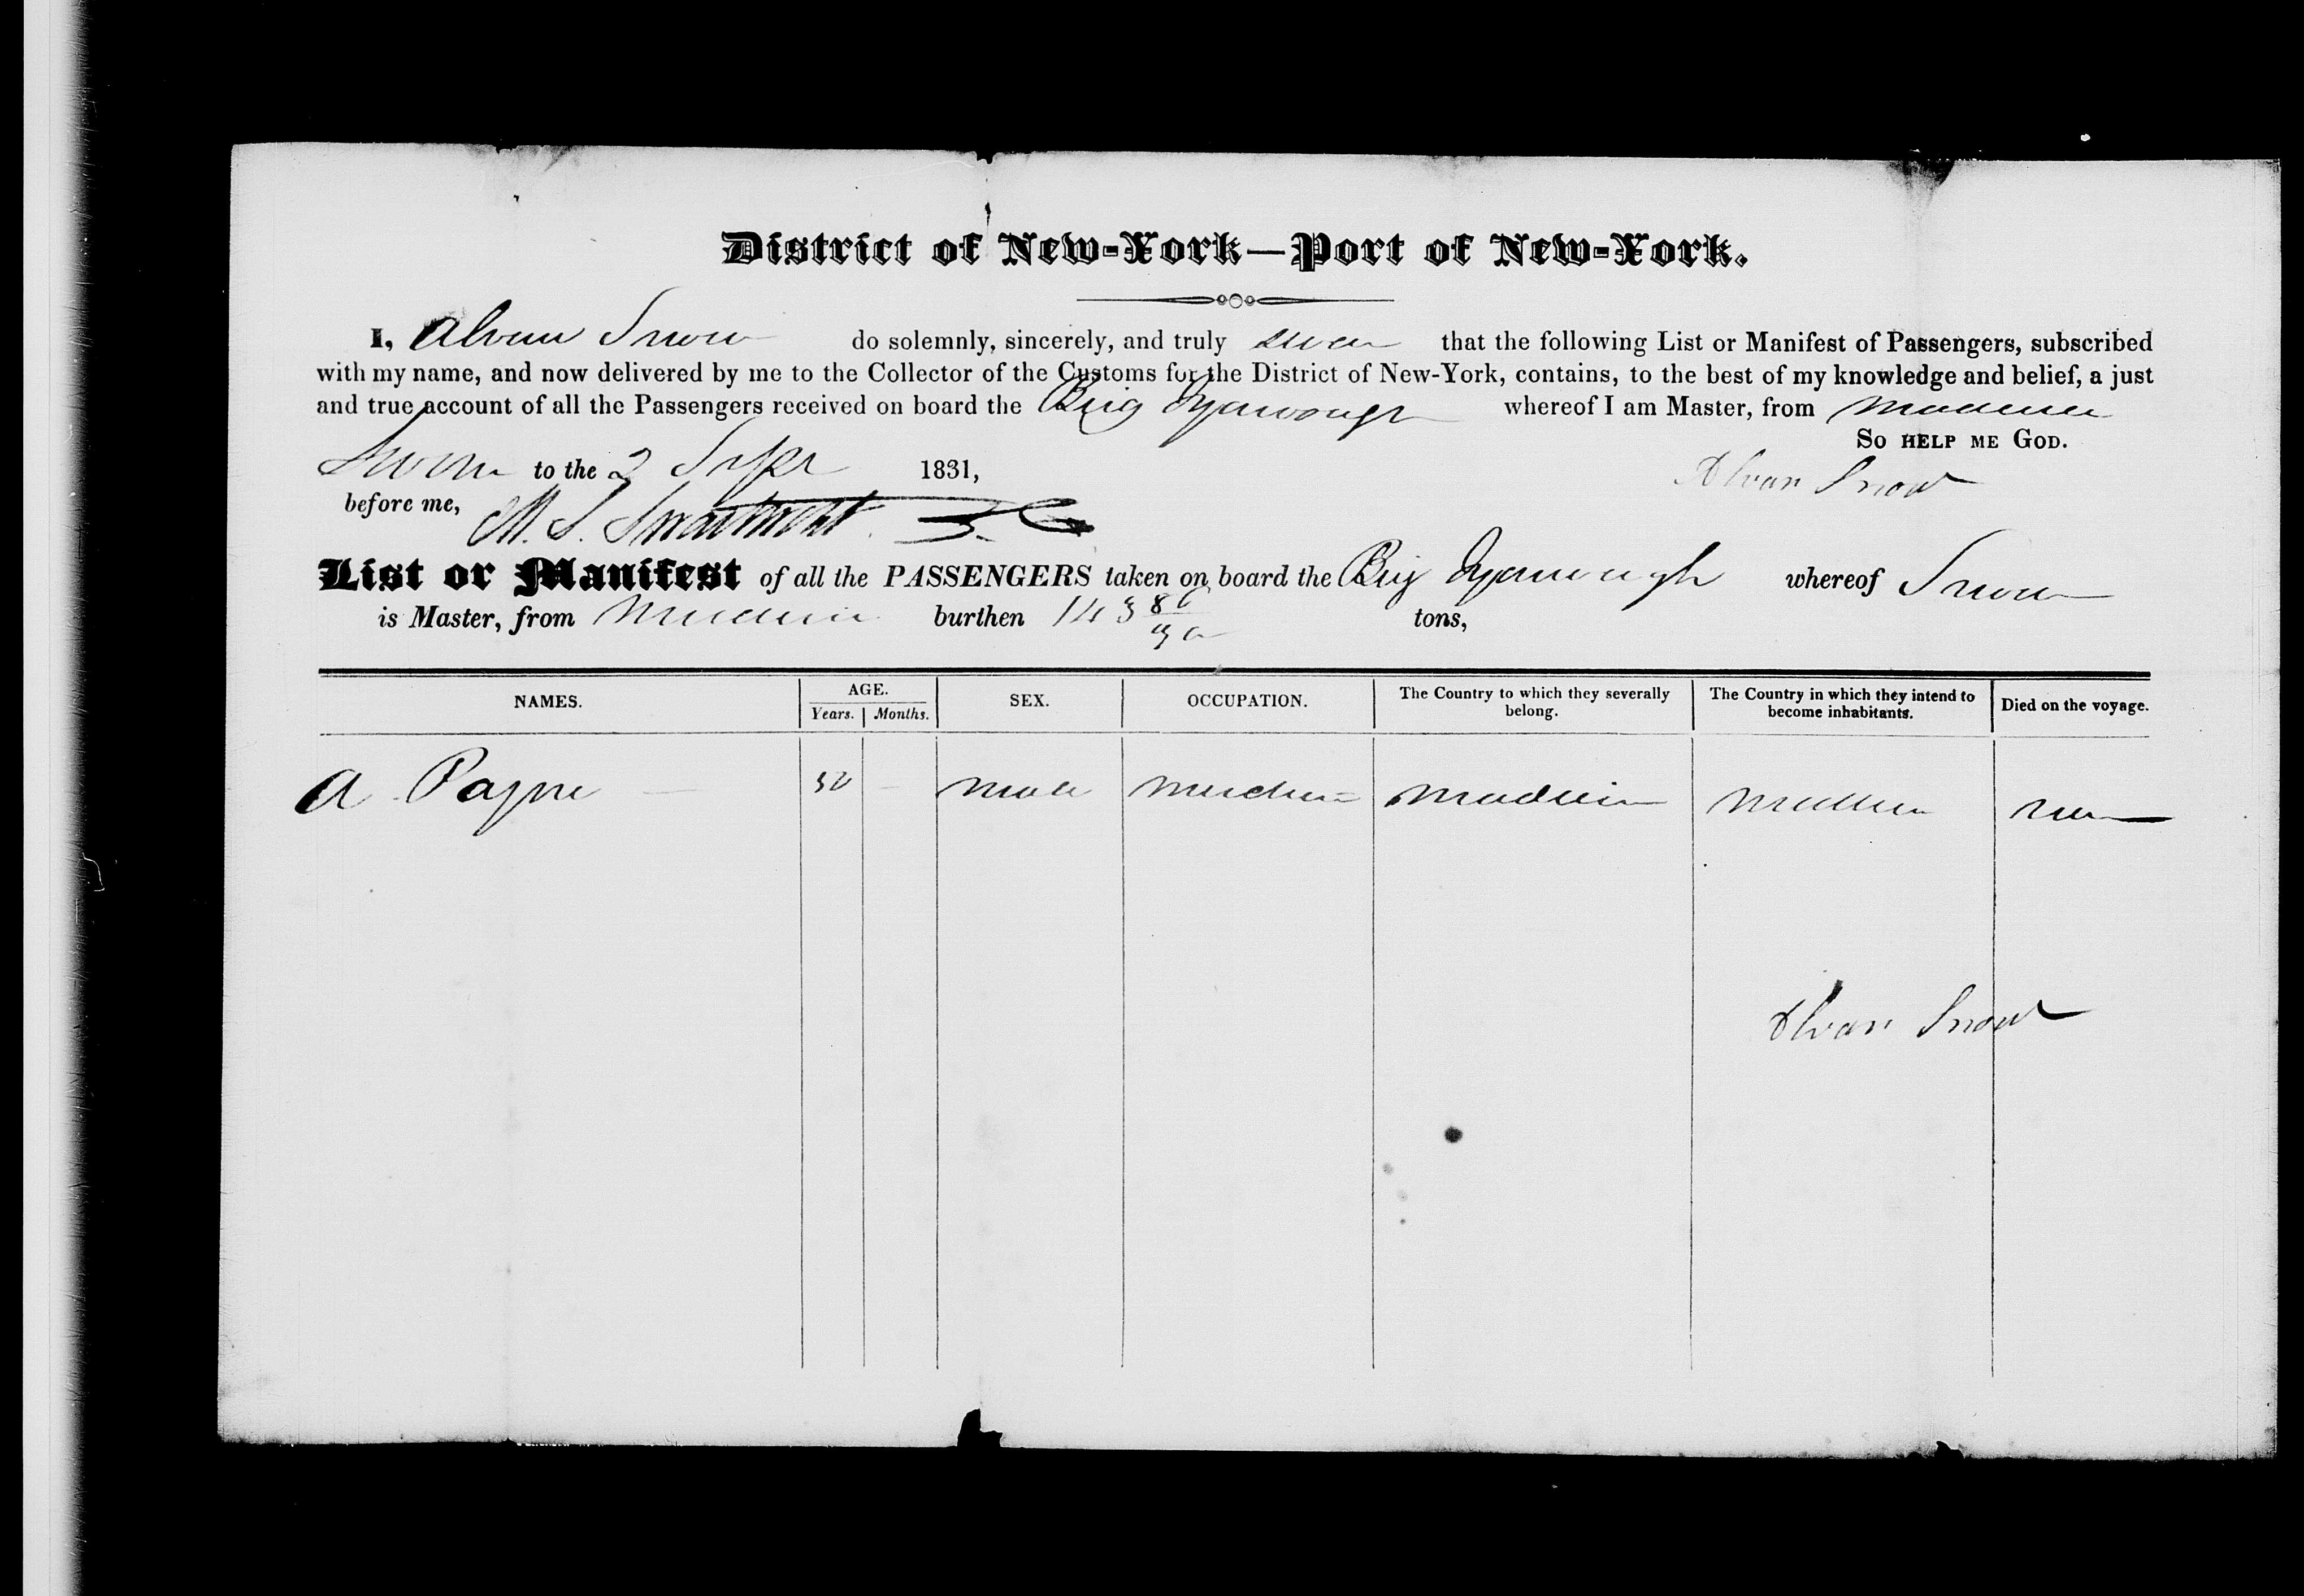 District of New-York—Port of New-York.
I, Alvan Snow do solemnly, sincerely, and truly swear that the following List or Manifest of Passengers, subscribed
with my name, and now delivered by me to the Collector of the Customs for the District of New-York, contains, to the best of my knowledge and belief, a just
and true account of all the Passengers received on board the Brig whereof I am Master, from Madeira
So help me God.
Sworn to the 2 Sept 1831,
Alvan Snow
before me, M. S. Swartwout
List or Manifest of all the PASSENGERS taken on board the Brig whereof Snow
is Master, from Madeira burthen 143 tons,
NAMES. AGE. Years. Months. SEX. OCCUPATION. The Country to which they severally belong. The Country in which they intend to become inhabitants. Died on the voyage.
A Payne — Male Merchant Madeira Madeira
Alvan Snow